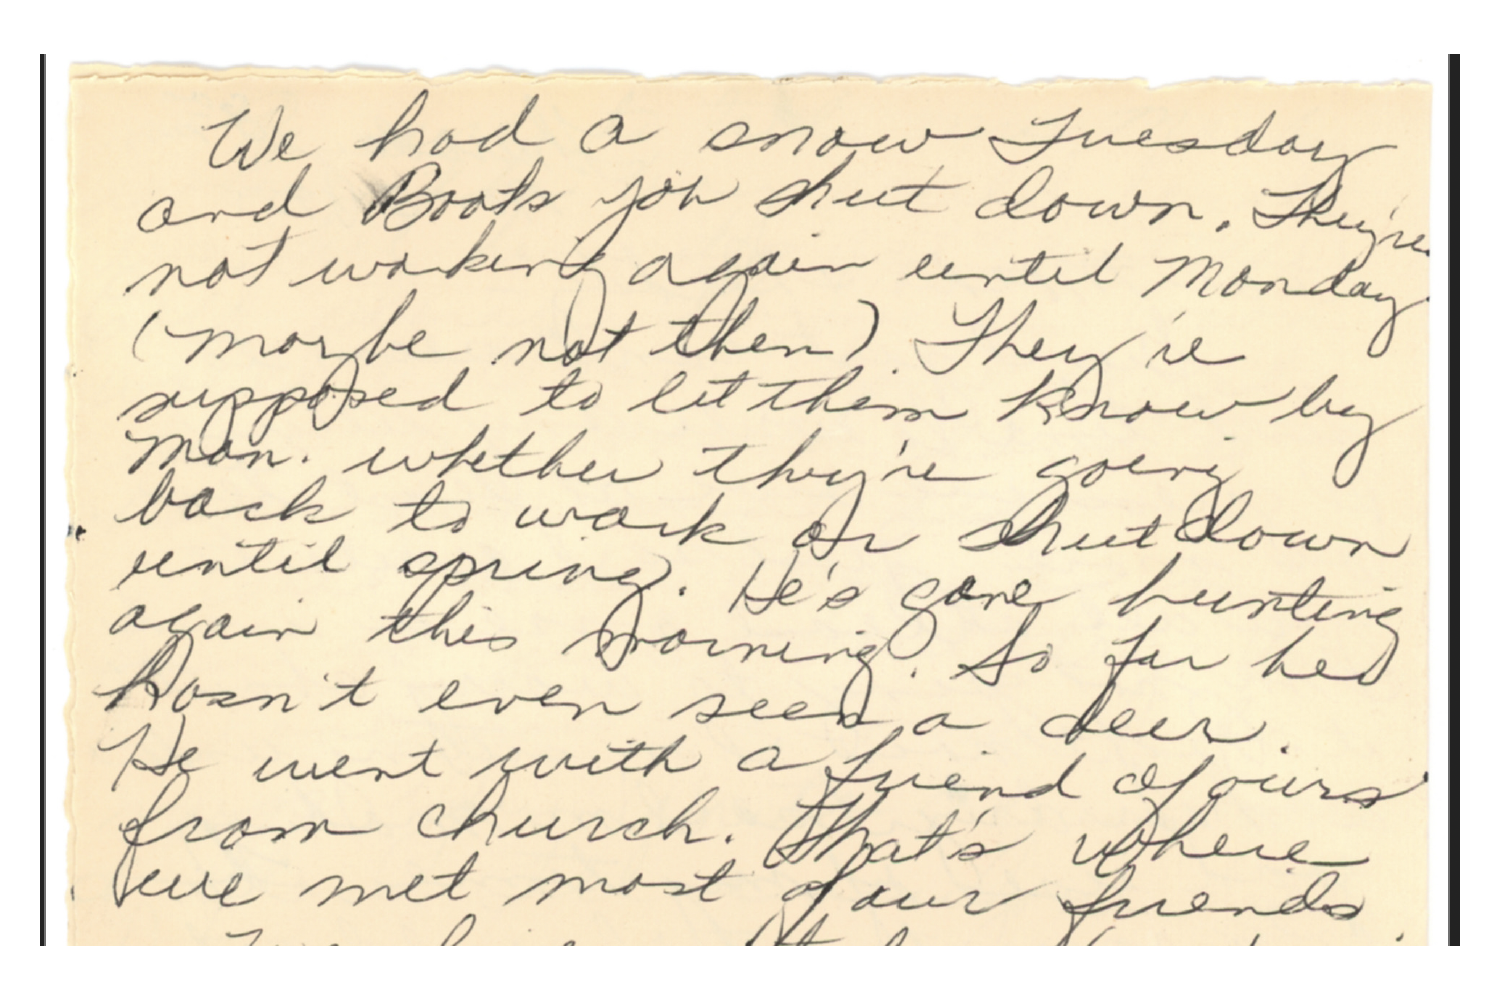 We had a snow Tuesday
and Boots job shut down. They're
not working again until Monday
(maybe not then) They're
supposed to let them know by
Mon. whether they're going
back to work or shut down
until spring. He's gone hunting
again this morning. So far he
hasn't even seen a deer.
He went with a friend of ours
from church. That's where
we met most of our friends